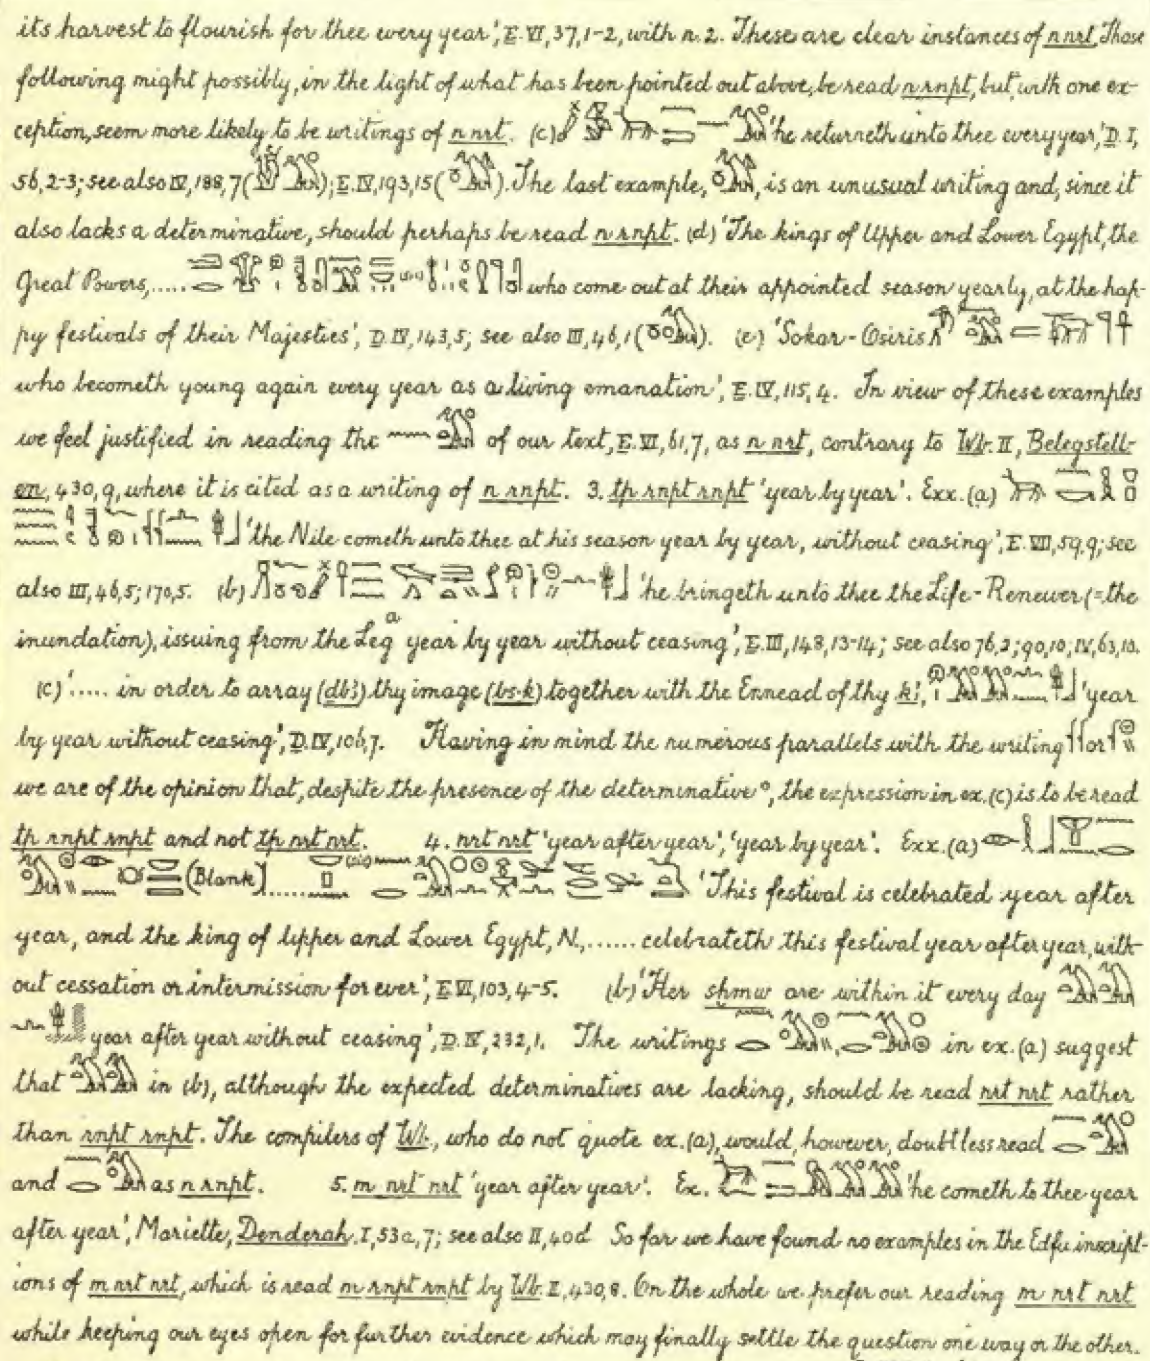 its harvest to flourish for thee every year', E. VI, 37, 1-2, with n. 2. These are clear instances of n nrt. Those
following might possibly, in the light of what has been pointed out above, be read n rnpt, but, with one ex-
ception, seem more likely to be writings of n nrt. (c) 'he returneth unto thee every year', D. I,
56, 2-3; see also IV, 188, 7 ( ); E. IV, 193, 15 ( ). The last example, , is an unusual writing and, since it
also lacks a determinative, should perhaps be read n rnpt. (d) 'The kings of Upper and Lower Egypt, the
Great Powers, ..... who come out at their appointed season yearly, at the hap-
py festivals of their Majesties', D. IV, 143, 5; see also III, 46, 1 ( ). (e) 'Sokar-Osiris
who becometh young again every year as a living emanation', E. IV, 115, 4. In view of these examples
we feel justified in reading the of our text, E. VI, 61, 7, as n nrt, contrary to Wb. II, Belegstell-
en, 430, 9, where it is cited as a writing of n rnpt. 3. tp rnpt rnpt 'year by year'. Exx. (a)
'the Nile cometh unto thee at his season year by year, without ceasing', E. VII, 59, 9; see
also III, 46, 5; 170, 5. (b) 'he bringeth unto thee the Life-Renewer (= the
inundation), issuing from the Leg a year by year without ceasing', E. III, 148, 13-14; see also 76, 2; 90, 10; IV, 63, 10.
(c) '..... in order to array (dbꜣ) thy image (bs·k) together with the Ennead of thy kꜣ, 'year
by year without ceasing', D. IV, 106, 7. Having in mind the numerous parallels with the writing or
we are of the opinion that, despite the presence of the determinative °, the expression in ex. (c) is to be read
tp rnpt rnpt and not tp nrt nrt. 4. nrt nrt 'year after year', 'year by year'. Exx. (a)
(Blank) ...... 'This festival is celebrated year after
year, and the king of Upper and Lower Egypt, N., ...... celebrateth this festival year after year, with-
out cessation or intermission for ever', E. VI, 103, 4-5. (b) 'Her sḫmw are within it every day
year after year without ceasing', D. IV, 232, 1. The writings , in ex. (a) suggest
that in (b), although the expected determinatives are lacking, should be read nrt nrt rather
than rnpt rnpt. The compilers of Wb., who do not quote ex. (a), would, however, doubtless read
and as n rnpt. 5. m nrt nrt 'year after year'. Ex. 'he cometh to thee year
after year', Mariette, Denderah. I, 53a, 7; see also II, 40d So far we have found no examples in the Edfu inscript-
ions of m nrt nrt, which is read m rnpt rnpt by Wb. II, 430, 8. On the whole we prefer our reading m nrt nrt
while keeping our eyes open for further evidence which may finally settle the question one way or the other.